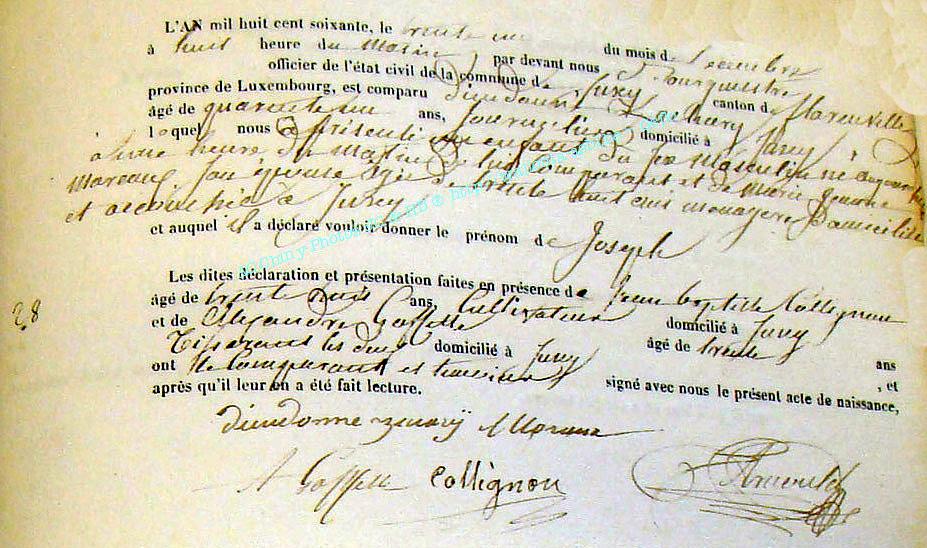 L'AN mil huit cent soixante, le trente un du mois de Décembre
à huit heure du Matin par devant nous Bourguestre
officier de l'état civil de la commune de Izel canton de Florenville
province de Luxembourg, est comparu Dieudonné Zachary
âgé de quarante un ans, Journalier domicilié à
lequel nous a présenté un enfant du sexe Masculin né aujourd'hui
à une heure du Matin de lui Comparant et de Marie Jeanne
son épouse âgée de trente huit ans ménagère Domiciliée
et accouchée à
et auquel il a déclaré vouloir donner le prénom de Joseph
Les dites déclaration et présentation faites en présence de Jean baptiste Collignon
âgé de trente huit ans, Cultivateur domicilié à
28
et de Alexandre Goffette âgé de trente ans
Tisserand les deux domicilié à , et
ont le Comparant et témoins signé avec nous le présent acte de naissance,
après qu'il leur en a été fait lecture.
dieudonne
A Goffette Collignon